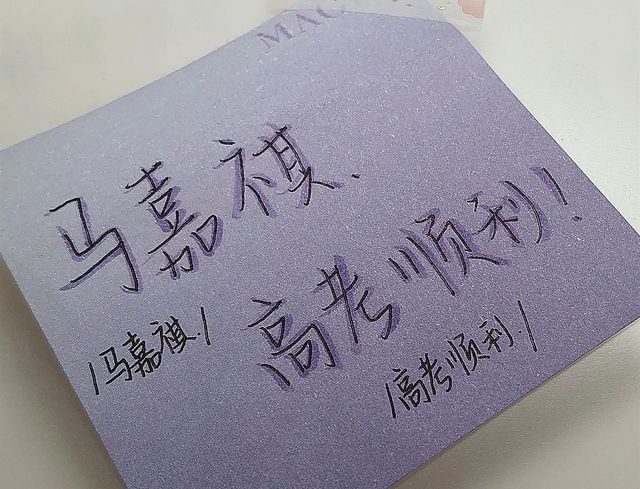 马嘉祺.
高考顺利!
/马嘉祺./
/高考顺利./